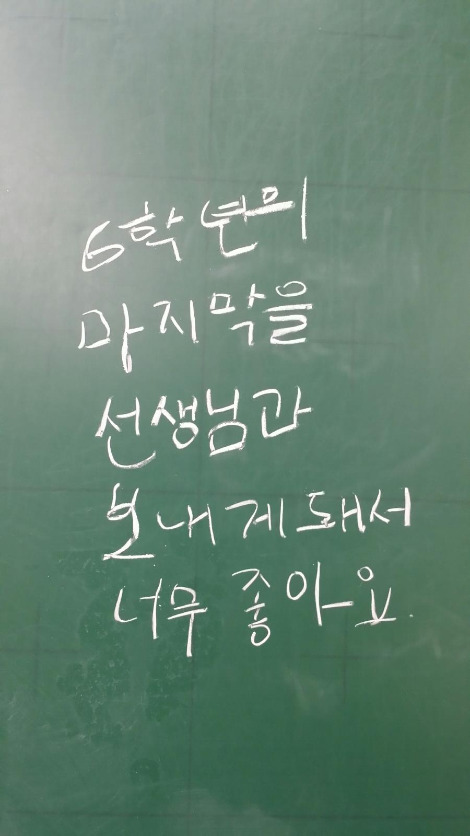 6학년의
마지막을
선생님과
보내게돼서
너무 좋아요.